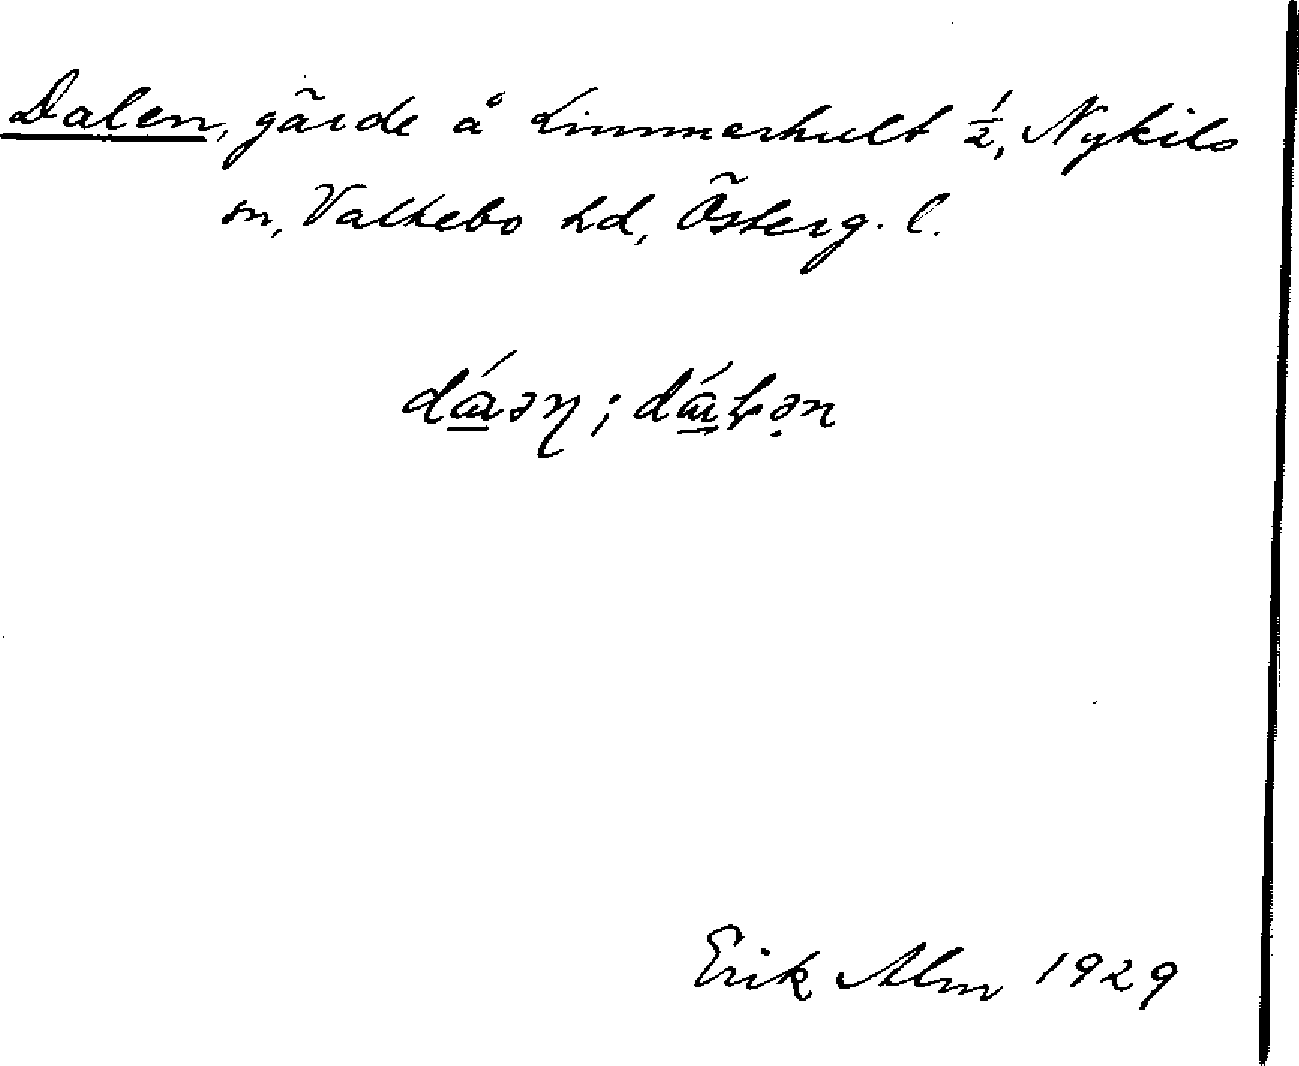 Dalen, gärde å Limmerhult ½, Nykils
sn, Valkebo hd, Österg. l.
Erik Alm 1929